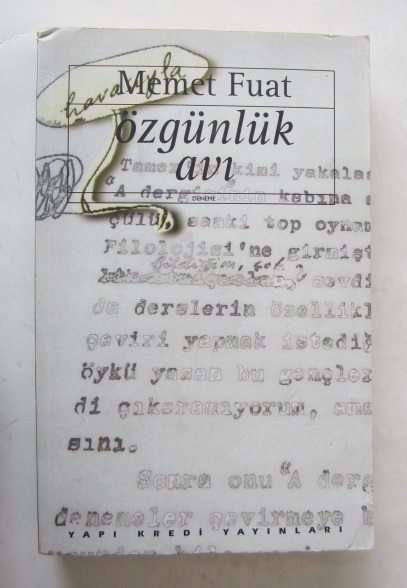 Memet Fuat
özgünlük
avı
DENEME
havasıyla
kimi yakalas
"A dergisinin kabına s
sanki top oynam
Filolojisi'ne girmişt
çok
sevdi
da derslerin özellikl
çeviri yapmak istediğ
öykü yazan bu gençler
di çıkaramıyorum, ama
sını.
Sonra onu "A derg
denemeler çevirmeye b
YAPI KREDİ YAYINLARI